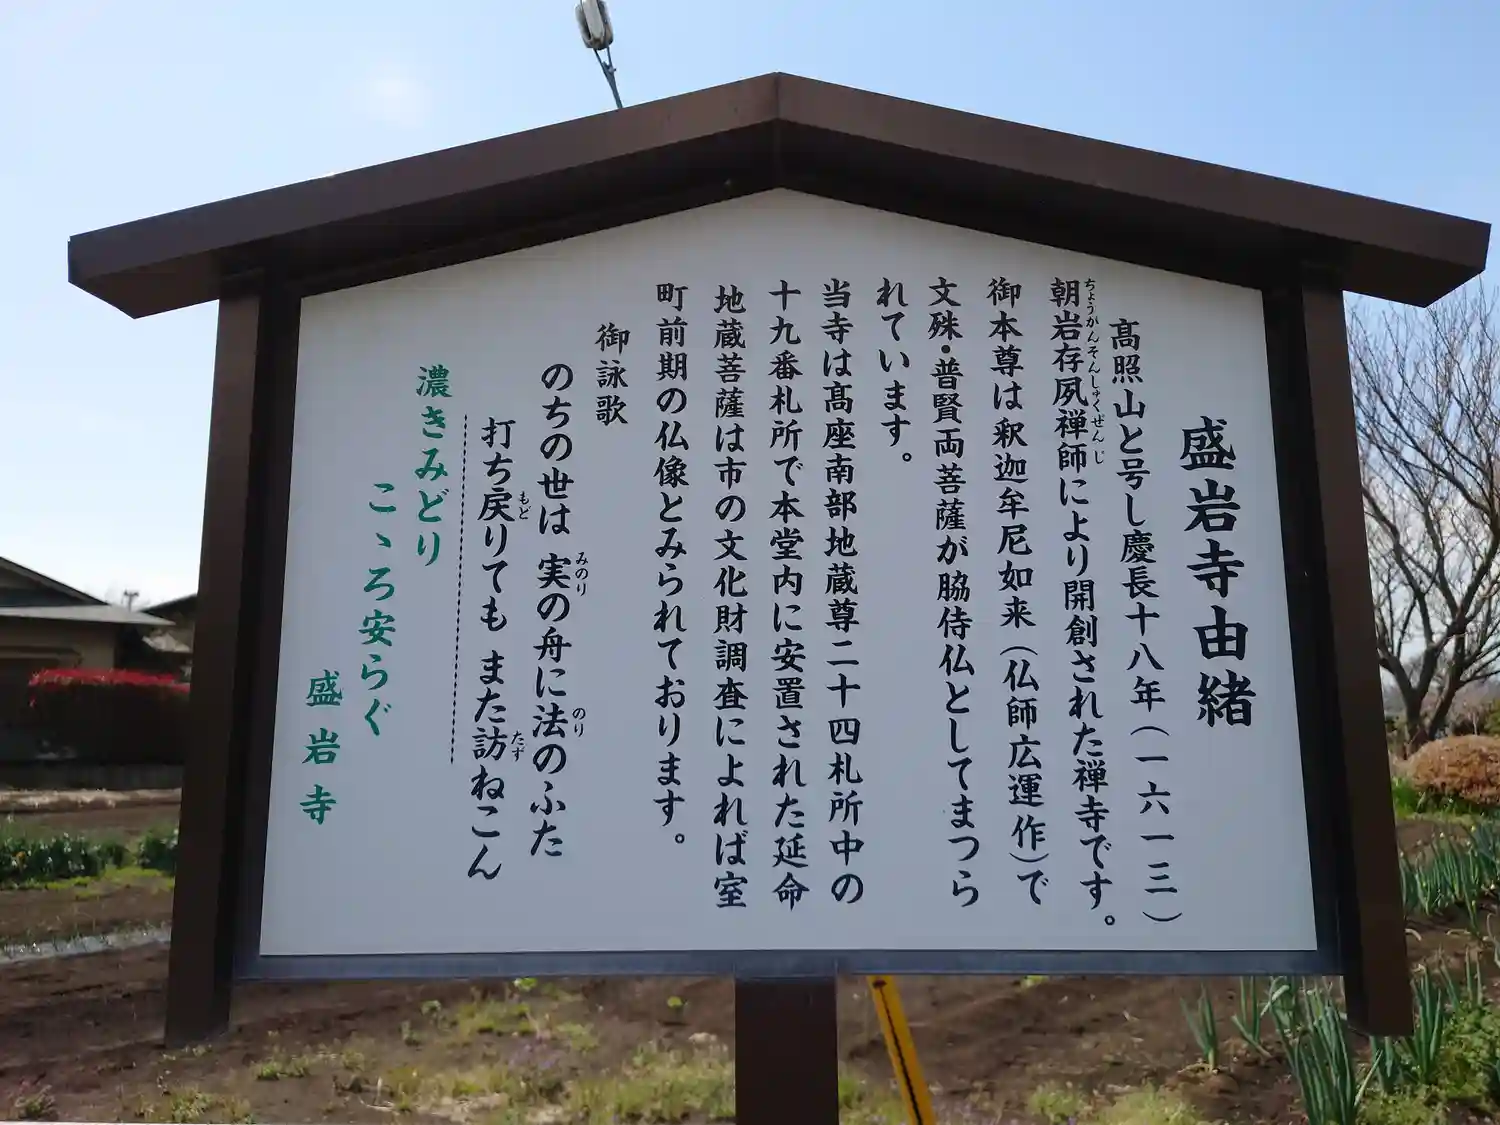 盛岩寺由緒
髙照山と号し慶長十八年（一六一三）
朝岩存夙禅師により開創された禅寺です。
ちょうがんそんしゅくぜんじ
御本尊は釈迦牟尼如来（仏師広運作）で
文殊・普賢両菩薩が脇侍仏としてまつら
れています。
当寺は髙座南部地蔵尊二十四札所中の
十九番札所で本堂内に安置された延命
地蔵菩薩は市の文化財調査によれば室
町前期の仏像とみられております。
御詠歌
のちの世は 実の舟に法のふた
みのり
のり
打ち戻りても また訪ねこん
もど
たず
濃きみどり
こゝろ安らぐ
盛岩寺